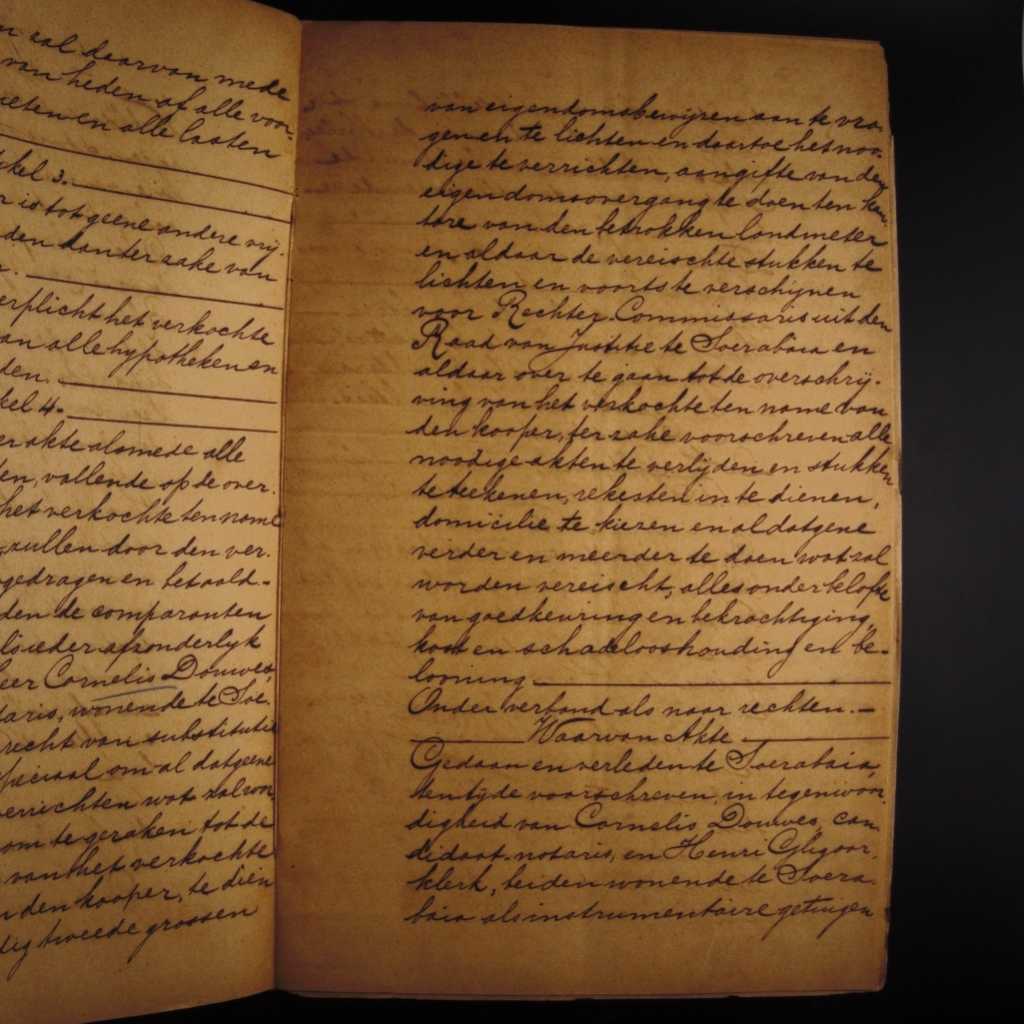 zal daarvan mede
van heden af alle voor-
en alle lasten
kel 3.
is tot geene andere vrij-
den dan ter zake van
erplicht het verkochte
an alle hypotheken en
den.
kel 4.
er akte alsmede alle
en, vallende op de over-
het verkochte ten name
zullen door den ver-
gedragen en betaald.
den de comparanten
ieder afzonderlyk
eer Cornelis Douwes,
taris, wonende te Soe-
recht van substitutie
speciaal om al datgeene
verrichten wat zal wor-
om te geraken tot de
van het verkochte
den kooper, te dien
dig tweede grossen
van eigendomsbewijzen aan te vra-
gen en te lichten en daartoe het noo-
dige te verrichten, aangifte van den
eigendomsovergang te doen ten kan-
tore van den betrokken landmeter
en aldaar de vereischte stukken te
lichten en voorts te verschijnen
voor Rechter-Commissaris uit den
Raad van Justitie te Soerabaia en
aldaar over te gaan tot de overschrij-
ving van het verkochte ten name van
den kooper, ter zake voorschreven alle
noodige akten te verlijden en stukken
te teekenen, rekesten in te dienen,
domicilie te kiezen en al datgene
verder en meerder te doen wat zal
worden vereischt, alles onder belofte
van goedkeuring en bekrachtiging,
kost en schadelooshouding en be-
looning.
Onder verband als naar rechten.
Waarvan Akte
Gedaan en verleden te Soerabaia,
ten tyde voorschreven, in tegenwoor-
digheid van Cornelis Douwes, can-
didaat-notaris, en Henri Gligoor,
klerk, beiden wonende te Soera-
baia als instrumentaire getuigen